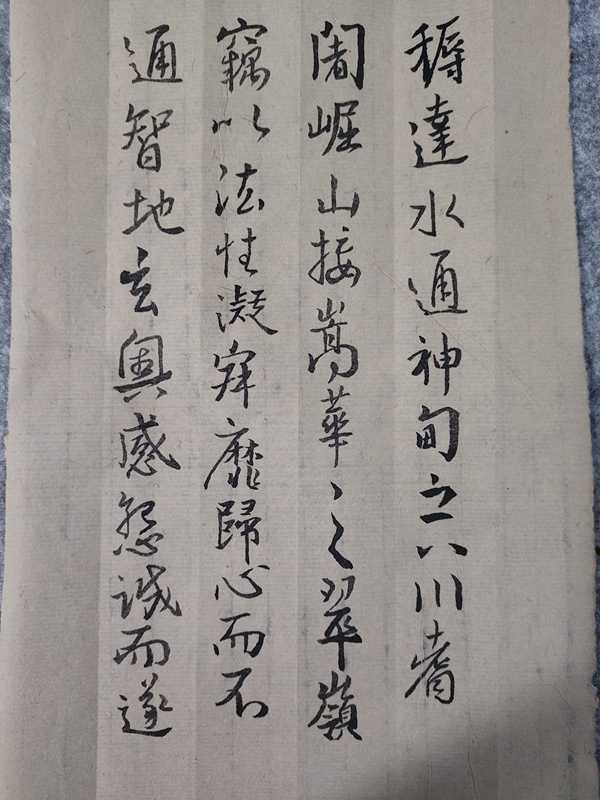 耨達水通神甸之八川耆
闍崛山接嵩華之翠嶺
竊以法性凝寂靡歸心而不
通智地玄奧感懇誠而遂